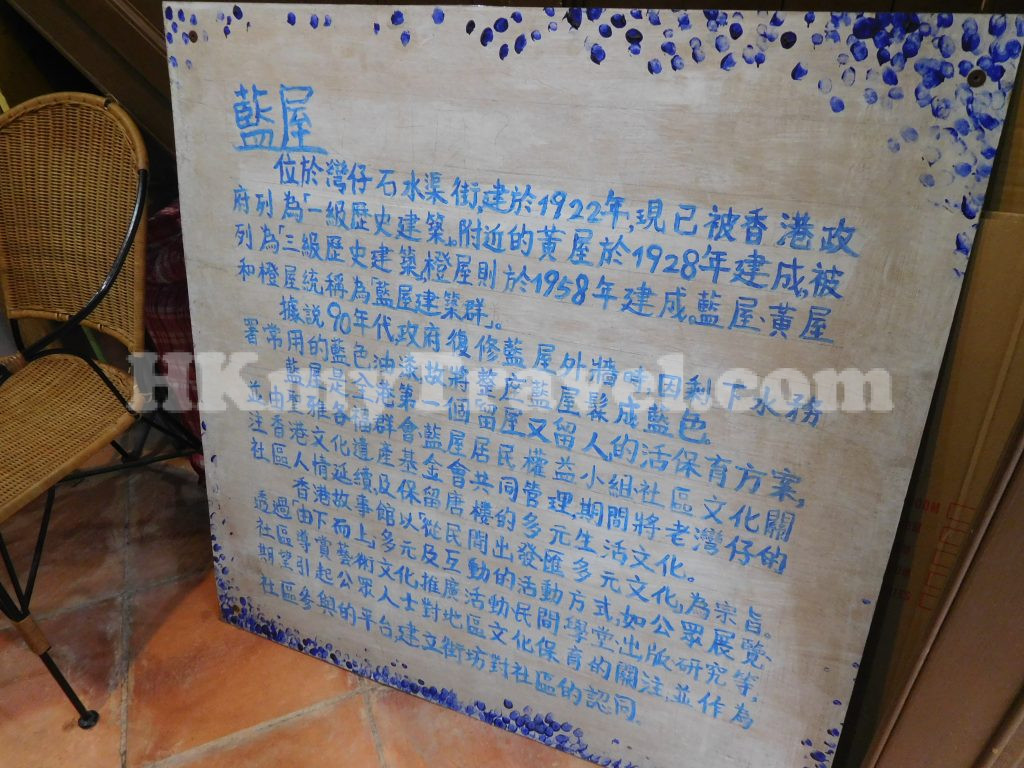 藍屋
位於灣仔石水渠街,建於1922年,現已被香港政
府列為「一級歷史建築」。附近的黃屋於1928年建成,被
列為「三級歷史建築」,橙屋則於1958年建成。藍屋、黃屋
和橙屋統稱為「藍屋建築群」。
據說90年代政府復修藍屋外牆時因剩下水務
署常用的藍色油漆故將整座藍屋髹成藍色。
藍屋是全港第一個留屋又留人的活保育方案,
並由聖雅各福群會藍屋居民權益小組社區文化關
注香港文化遺產基金會共同管理,期間將老灣仔的
社區人情延續,及保留唐樓的多元生活文化。
香港故事館以「從民間出發匯多元文化」為宗旨。
透過由下而上,多元及互動的活動方式,如公眾展覽、
社區導賞藝術文化推廣活動民間學堂,出版研究等,
期望引起公眾人士對地區文化保育的關注,並作為
社區參與的平台,建立街坊對社區的認同。
HKmyTravel.com